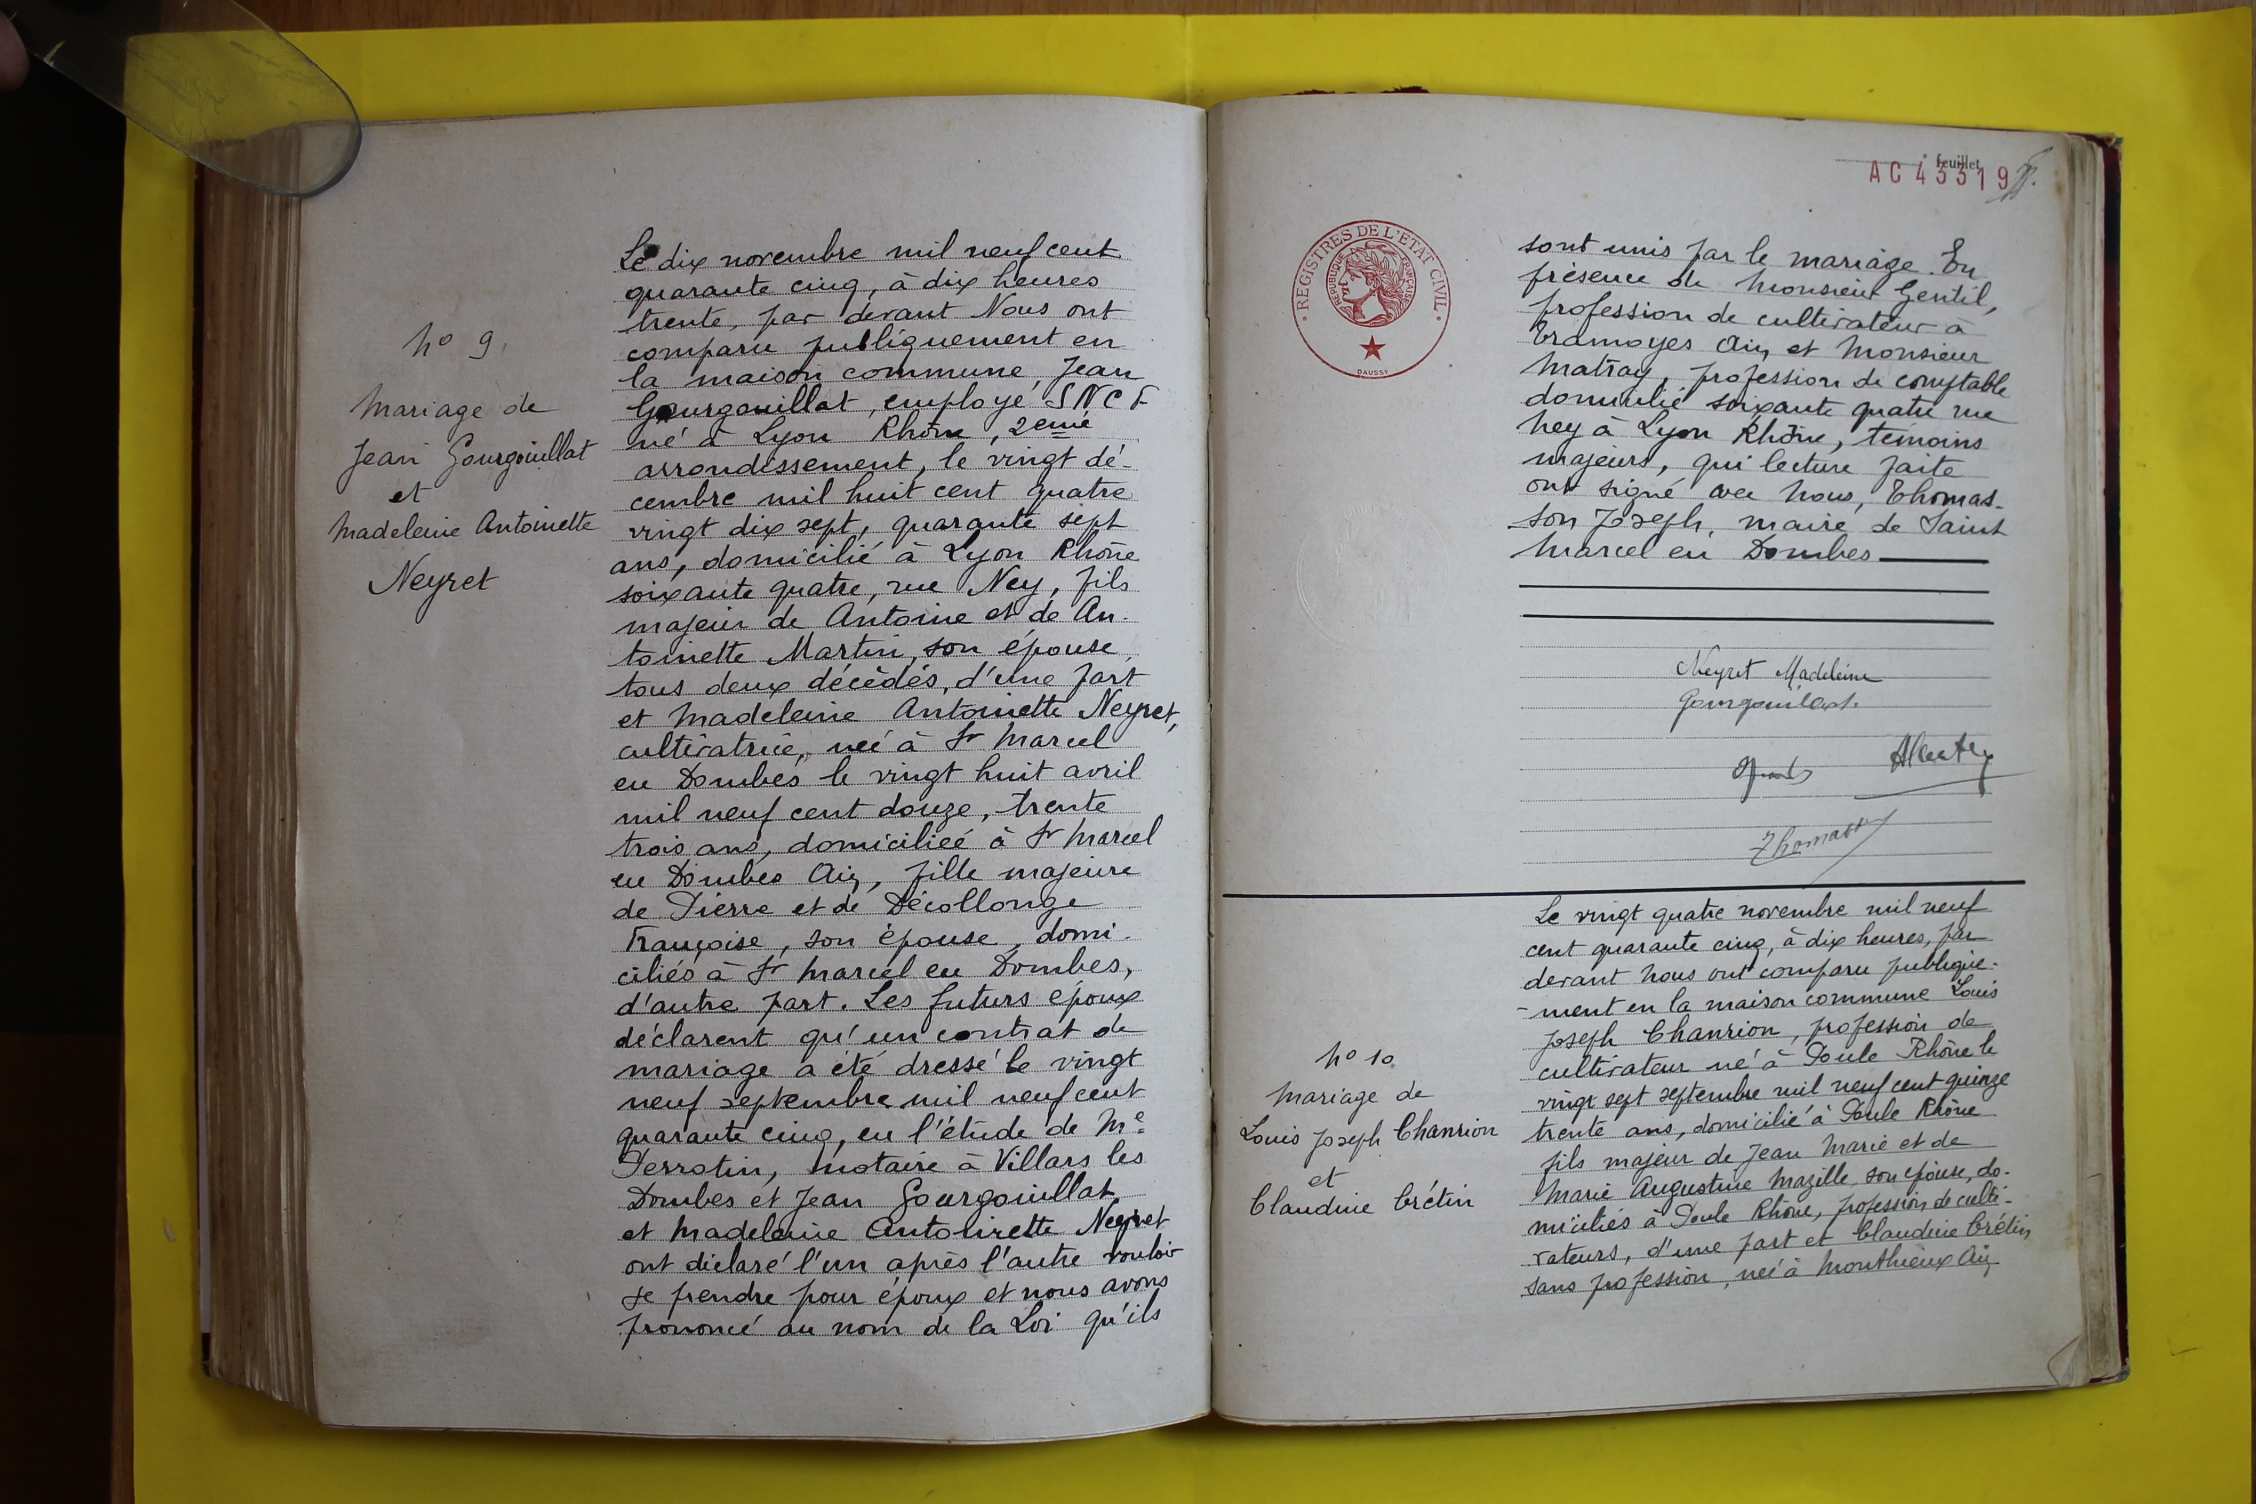 n° 9.
Mariage de
Jean Gourgouillat
et
Madeleine Antoinette
Neyret
Le dix novembre mil neuf cent
quarante cinq, à dix heures
trente, par devant Nous ont
comparu publiquement en
la maison commune, Jean
Gourgouillat, employé SNCF
né à Lyon Rhône, 2eme
arrondissement, le vingt dé-
cembre mil huit cent quatre
vingt dix sept, quarante sept
ans, domicilié à Lyon Rhône
soixante quatre, rue Ney, fils
majeur de Antoine et de An-
toinette Martin, son épouse,
tous deux décédés, d'une part
et Madeleine Antoinette Neyret,
cultivatrice, née à St Marcel
en Dombes le vingt huit avril
mil neuf cent douze, trente
trois ans, domiciliée à St Marcel
en Dombes Ain, fille majeure
de Pierre et de Décollonge
Françoise, son épouse, domi-
ciliés à St Marcel en Dombes,
d'autre part. Les futurs époux
déclarent qu'un contrat de
mariage a été dressé le vingt
neuf septembre mil neuf cent
quarante cinq, en l'étude de Me
Perrotin, notaire à Villars les
Dombes et Jean Gourgouillat
et Madeleine Antoinette Neyret
ont déclaré l'un après l'autre vouloir
se prendre pour époux et nous avons
prononcé au nom de la Loi qu'ils
feuillet
AC 43319
REGISTRES DE L'ETAT CIVIL
REPUBLIQUE FRANÇAISE
DAUSSY
sont unis par le mariage. En
présence de Monsieur Gentil,
profession de cultivateur à
Tramoyes Ain, et Monsieur
Matray, profession de comptable
domicilié soixante quatre rue
Ney à Lyon Rhône, témoins
majeurs, qui lecture faite
ont signé avec Nous, Thomas-
son Joseph, maire de Saint
Marcel en Dombes
Neyret Madeleine
Gourgouillat
Thomasson
n° 10.
Mariage de
Louis Joseph Chanrion
et
Claudine Crétin
Le vingt quatre novembre mil neuf
cent quarante cinq, à dix heures, par
devant Nous ont comparu publique-
-ment en la maison commune Louis
Joseph Chanrion, profession de
cultivateur né à Poule Rhône le
vingt sept septembre mil neuf cent quinze
trente ans, domicilié à Poule Rhône
fils majeur de Jean Marie et de
Marie Augustine Mazille son épouse, do-
miciliés à Poule Rhône, profession de culti-
vateurs, d'une part et Claudine Crétin
sans profession, née à Monthieux Ain